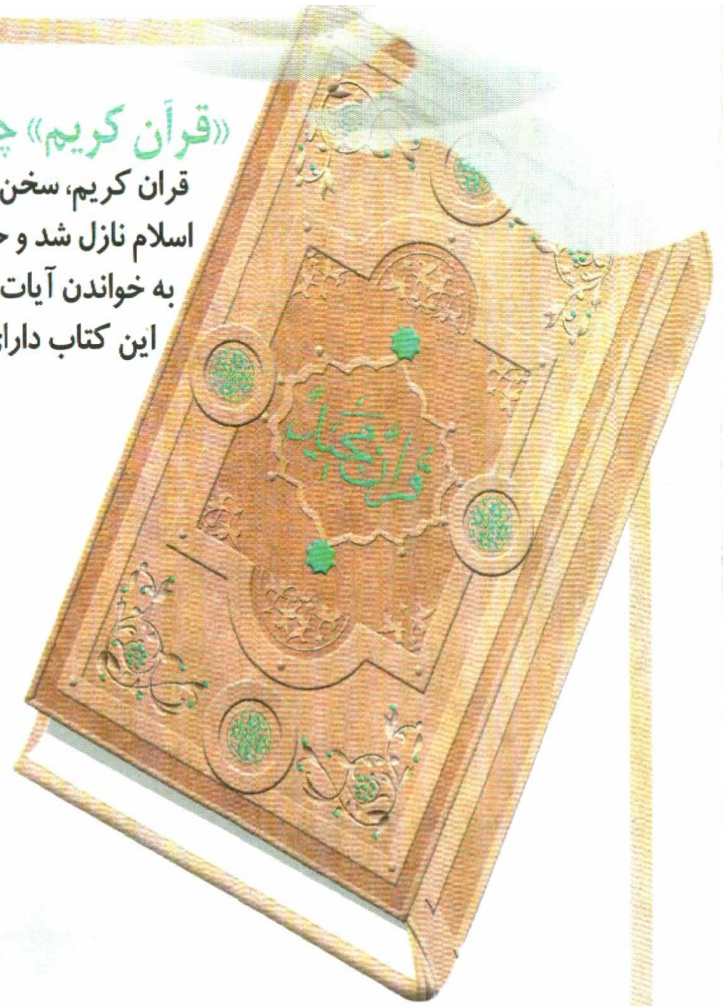 «قرآن کریم»
قران کریم، سخن
اسلام نازل شد و
به خواندن آیات
این کتاب
قرآن مجید